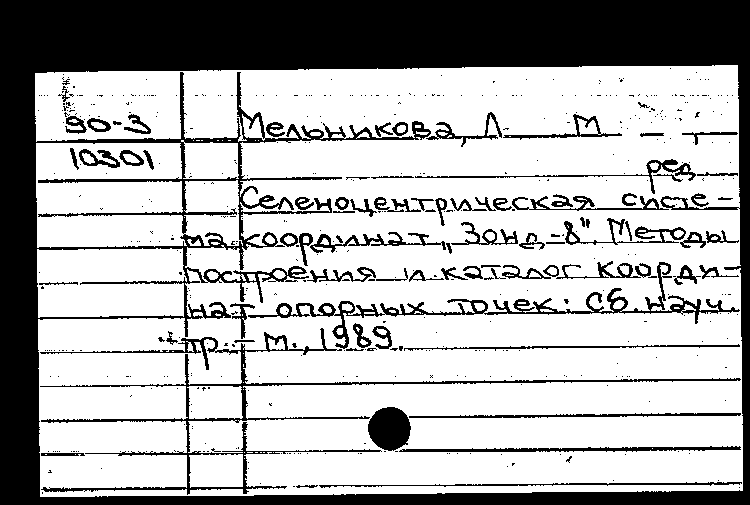 90-3 Мельникова, Л М — ,
10301
ред.
Селеноцентрическая систе-
ма координат „Зонд-8". Методы
построения и каталог коорди-
нат опорных точек: Сб. науч.
тр. - М., 1989.